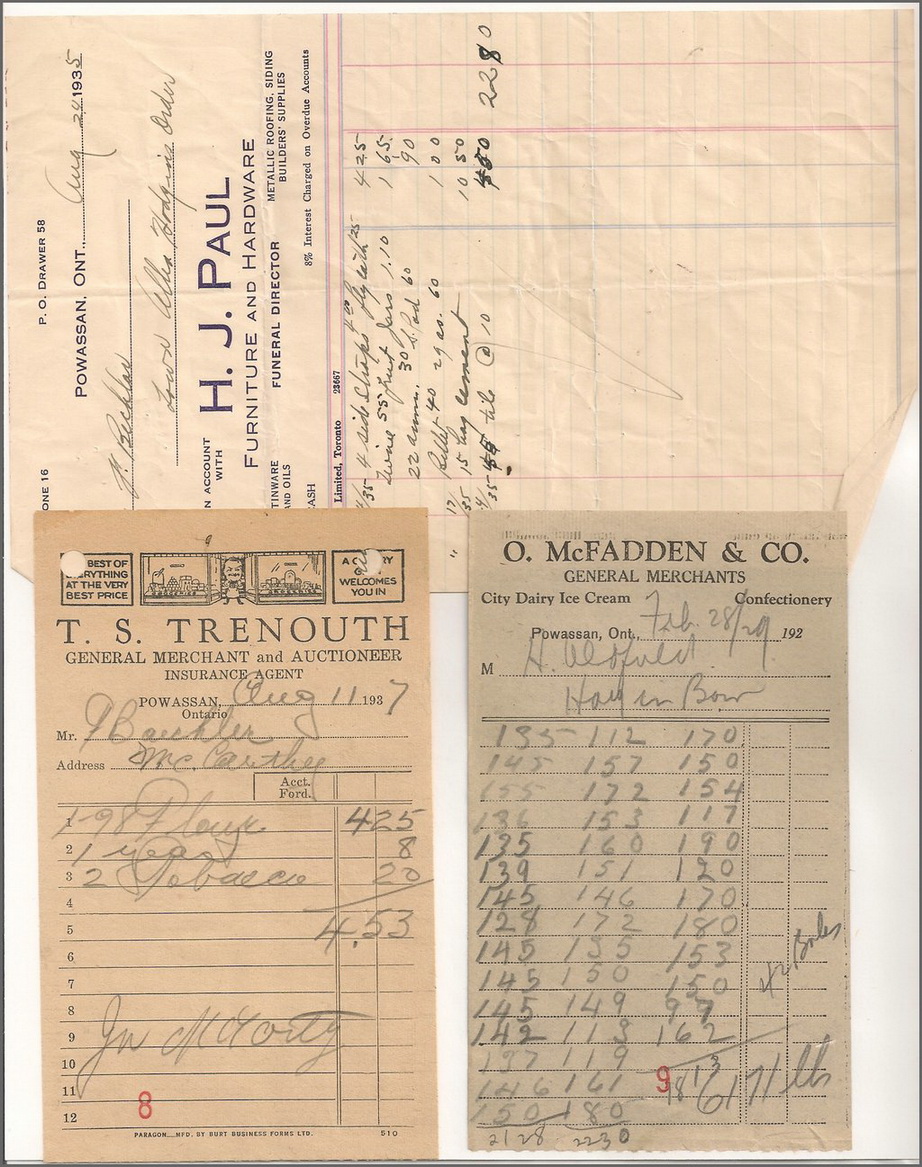 P. O. DRAWER 58
ONE 16
POWASSAN, ONT., Aug 24 1935
Order
N ACCOUNT
WITH
H. J. PAUL
FURNITURE AND HARDWARE
TINWARE
FUNERAL DIRECTOR
METALLIC ROOFING, SIDING
AND OILS
BUILDERS' SUPPLIES
CASH
8% Interest Charged on Overdue Accounts
Limited, Toronto 23667
4 side straps 4 25
Twine 55 fruit jars 1.10 1 65
30 60 90
40 60 1 00
15 bag cement 10 50
tile @ 10
22 80
BEST OF
EVERYTHING
AT THE VERY
BEST PRICE
WELCOMES
YOU IN
T. S. TRENOUTH
GENERAL MERCHANT and AUCTIONEER
INSURANCE AGENT
POWASSAN, Aug 11 1937
Ontario
Mr.
Address
Acct.
Ford.
1 1-98 Flour 4 25
2 1 yeast 8
3 2 Tobacco 20
4
5 4.53
6
7
8
9
10
11
12
8
PARAGON—MFD. BY BURT BUSINESS FORMS LTD. 510
O. McFADDEN & CO.
GENERAL MERCHANTS
City Dairy Ice Cream Confectionery
Powassan, Ont., Feb. 28/29 192
M H.
Hay in Bow
135 112 170
145 157 150
155 172 154
136 153 117
135 160 190
139 151 120
145 146 170
128 172 180
145 135 153
145 150 150
145 149 97
142 113 162
137 119
146 161 1813 6171 lbs
150 180
2128 2230
42 Bales
9